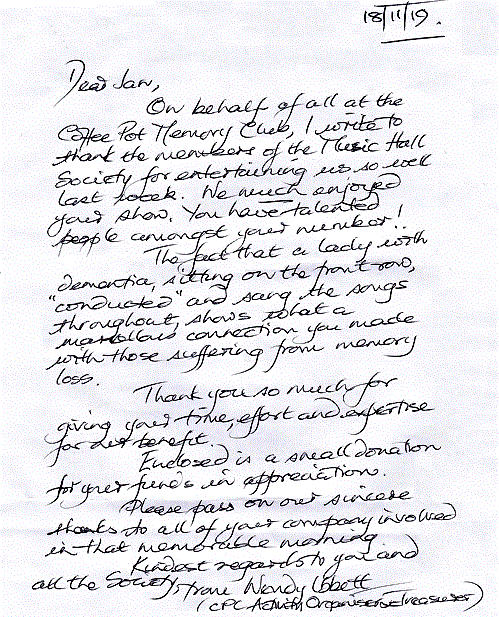 18/11/19.
Dear Jan,
On behalf of all at the
Coffee Pot Memory Club, I write to
thank the members of the Music Hall
Society for entertaining us so well
last week. We much enjoyed
your show. You have talented
people amongst your number!
The fact that a lady with
dementia, sitting on the front row,
"conducted" and sang the songs
throughout, shows what a
marvellous connection you made
with those suffering from memory
loss.
Thank you so much for
giving your time, effort and expertise
for our benefit.
Enclosed is a small donation
for your funds in appreciation.
Please pass on our sincere
thanks to all of your company involved
in that memorable morning.
Kindest regards to you and
all the Society, from Wendy
(CPC Activity Organiser & Treasurer)